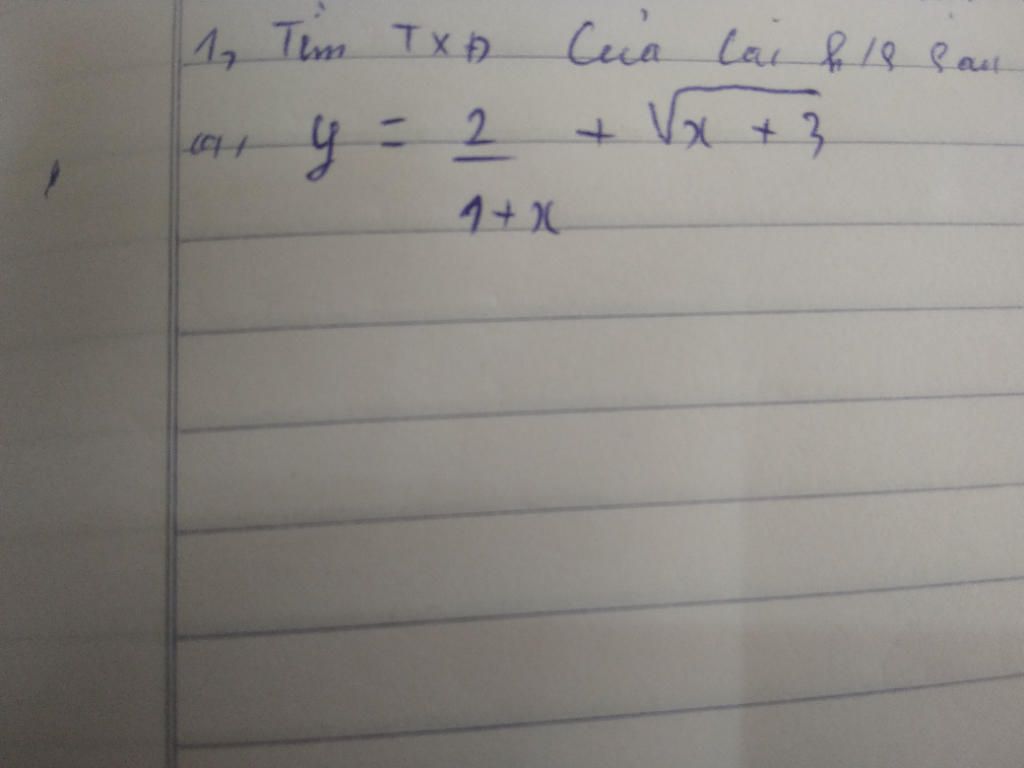 1, Tìm TXĐ Của Các h/s sau
a, y = 2 + √x + 3
1 + x